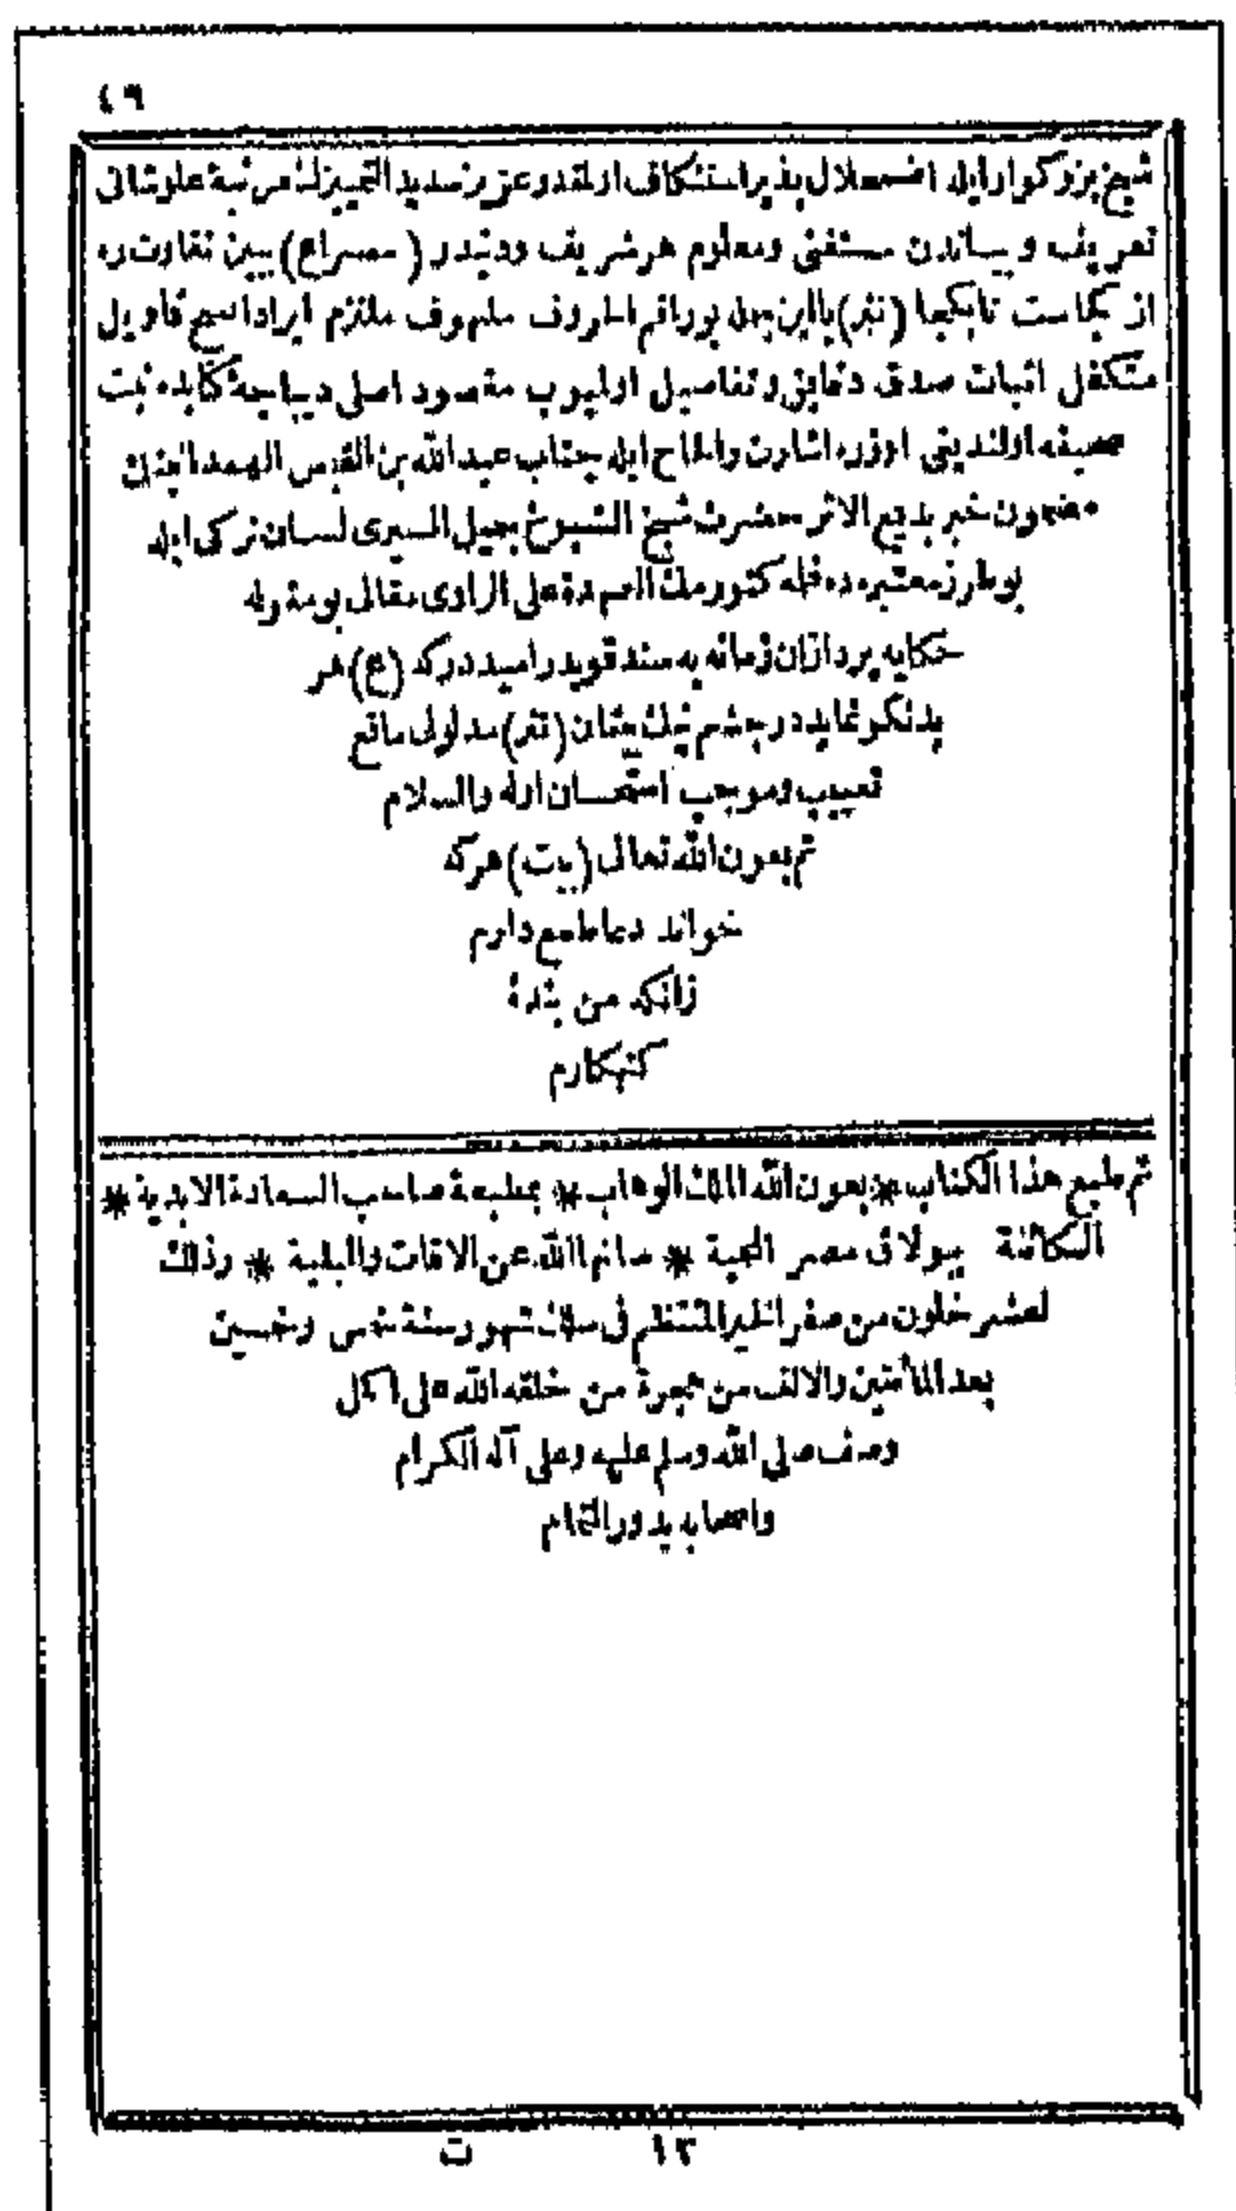 ٤٩
شيخ بزركوار ايله اضمحلال پذير استنكاف اولمقدر عزيز سديد التمييزك مرتبة علو شانى
تعريف و بياندن مستغنى ومعلوم هر شريف ودنيدر ( مصراع) ببين تفاوت ره
از كجاست تا بكجا (نثر) با اين همه بو راقم الحروف ملهوف ملتزم ايراد اصح اقاويل
متكفل اثبات صدق دقايق وتفاصيل اوليوب مقصود اصلى ديباجهٔ كتابده ثبت
صحيفه اولنديغى اوزره اشارت والحاح ايله جناب عبد الله بن القيس الهمدانينك
مضمون خبر بديع الاثر حضرت شيخ الشيوخ جميل السيرى لسان تركى ايله
بو طرز معتبره ده قلمه كتورمك العهدة على الراوى مقالى بو مقوله
حكايه پردازان زمانه يه سند قويدر اميد در كه (ع) هر
بد نكو نمايد در چشم نيك بينان (نثر) مدلولى مانع
تعييب وموجب استحسان اوله والسلام
تم بعون الله تعالى (بيت) هر كه
خواند دعا طمع دارم
زانكه من بندهٔ
كنهكارم
تم طبع هذا الكتاب * بعون الله الملك الوهاب * بمطبعة صاحب السعادة الابدية *
الكائنة ببولاق مصر المحمية * صانها الله عن الافات والبلية * وذلك
لعشر خلون من صفر الخير المنتظم فى سلك شهور سنة خمس وخمسين
بعد المأتين والالف من هجرة من خلقه الله على اكمل
وصف صلى الله وسلم عليه وعلى آله الكرام
واصحابه بدور التمام
١٣ ت